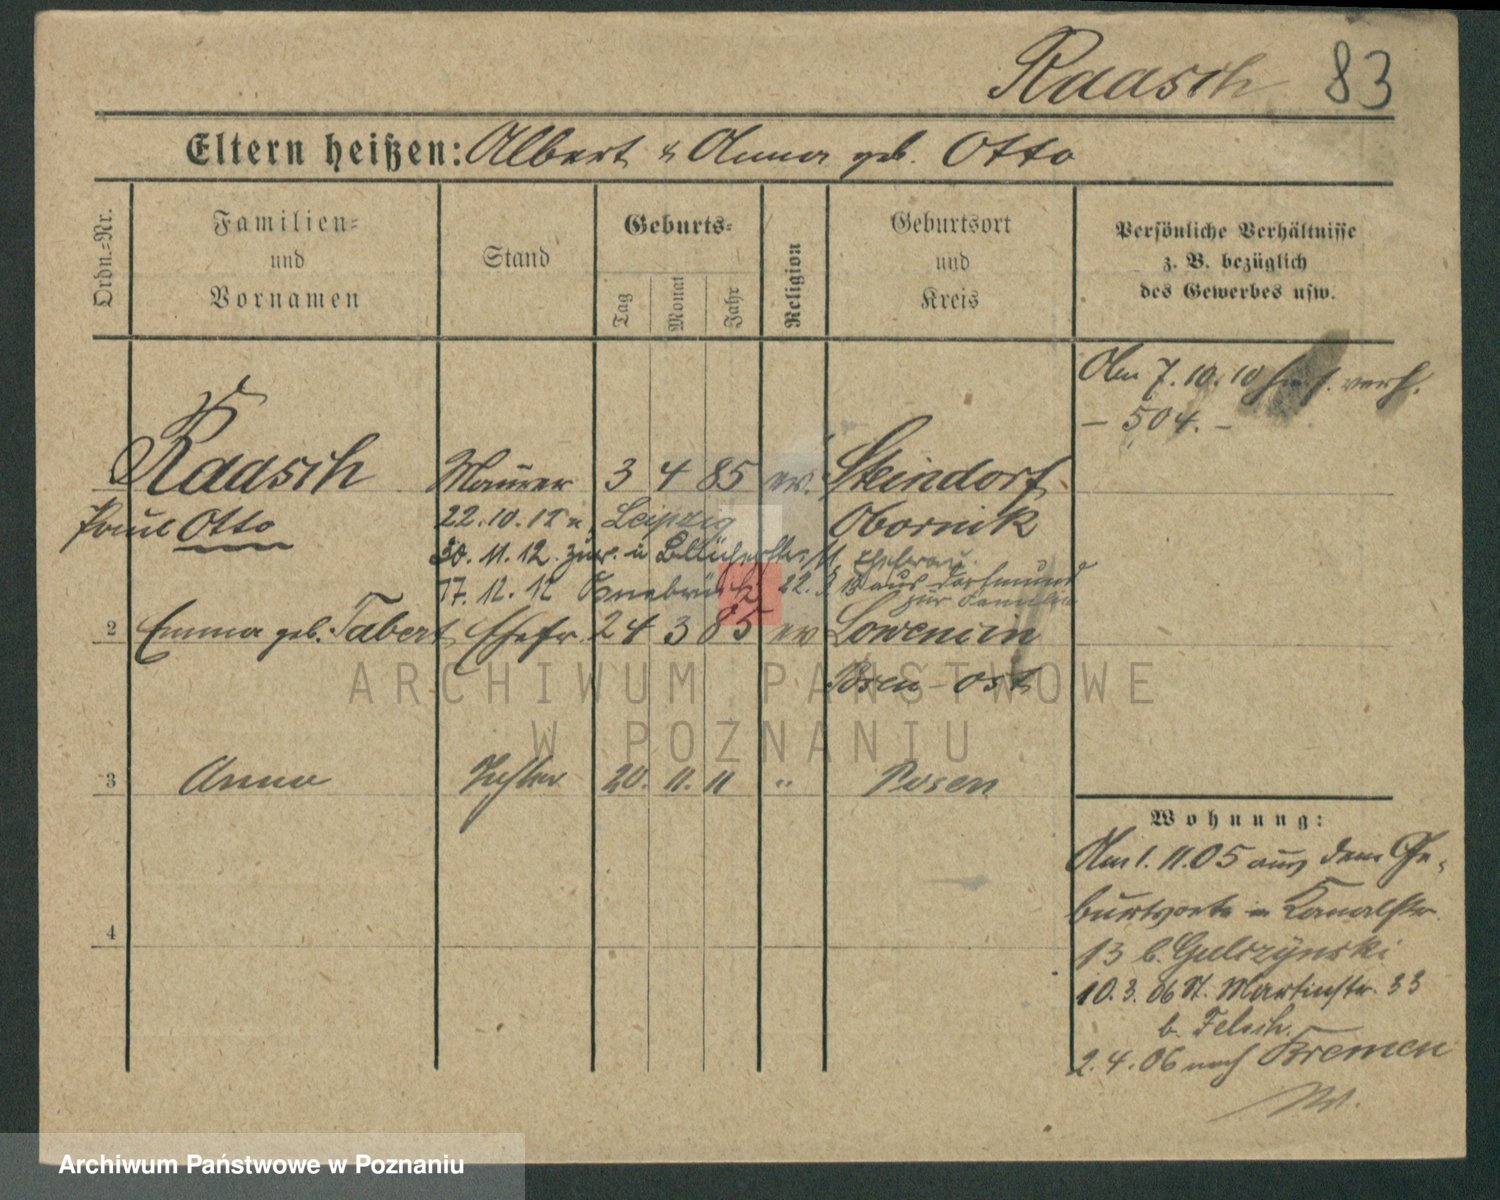 Raasch 83
Eltern heißen: Albert & Anna geb. Otto
Ordn.-Nr.
Familien- und Vornamen
Stand
Geburts-
Tag Monat Jahr
Religion
Geburtsort und Kreis
Persönliche Verhältnisse
z. B. bezüglich
des Gewerbes usw.
Am 7.10.10 verh.
– 504. –
Raasch Maurer 3 4 85 ev. Steindorf
Paul Otto 22.10.12 n. Leipzig Obornik
30.11.12. zur. Ehefrau
17.12.12 22. aus Dortmund
zur
2 Emma geb. Tabert Ehefr. 24 3 85 ev
Posen-Ost
3 Anna Tochter 20. 11. 11 " Posen
4
Wohnung:
Am 1.11.05 aus dem Ge-
burtsorte n Kanalstr.
13 b. Gulczynski
10.3.06 St. Martinstr. 33
b. Felsch.
2.4.06 nach Bremen
ARCHIWUM PAŃSTWOWE
W POZNANIU
Archiwum Państwowe w Poznaniu